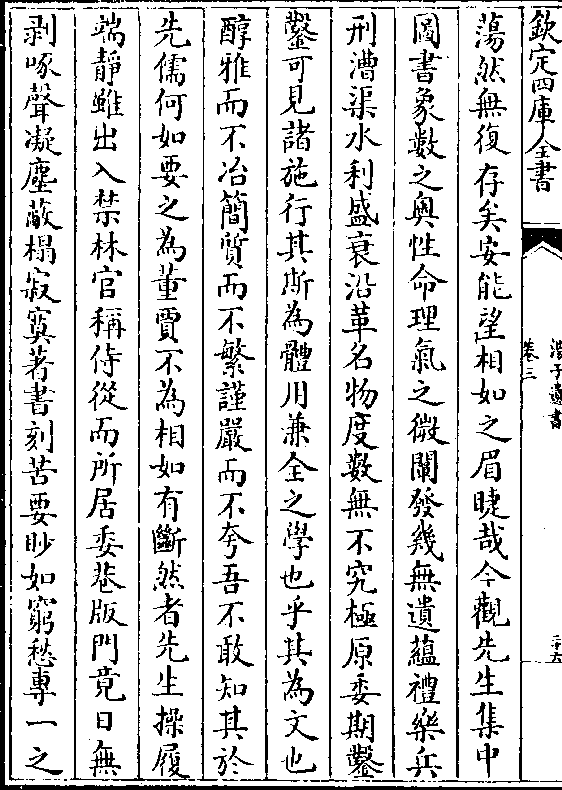 欽定四庫全書
湯子遺書
卷三
二十六
蕩然無復存矣安能望相如之眉睫哉今觀先生集中
圖書象數之奧性命理氣之微闡發幾無遺蘊禮樂兵
刑漕渠水利盛衰沿革名物度數無不究極原委期鑿
鑿可見諸施行其斯為體用兼全之學也乎其為文也
醇雅而不冶簡質而不繁謹嚴而不夸吾不敢知其於
先儒何如要之為董賈不為相如有斷然者先生操履
端靜雖出入禁林官稱侍從而所居委巷版門竟日無
剥啄聲凝塵蔽榻寂寞著書刻苦要眇如窮愁專一之